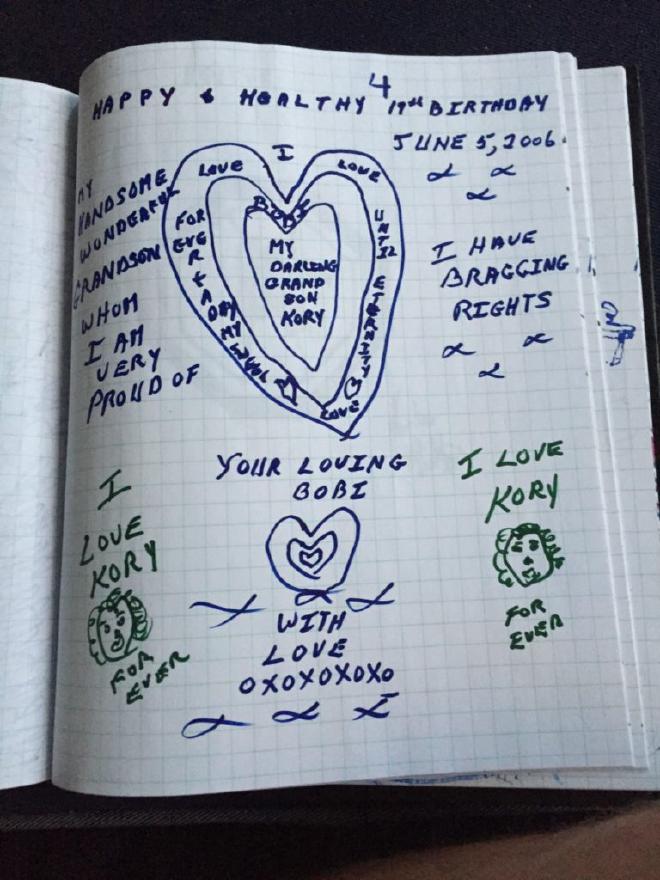 4
HAPPY & HEALTHY 19th BIRTHDAY
JUNE 5, 2006.
MY
HANDSOME
WONDERFUL
GRANDSON
WHOM
I AM
VERY
PROUD OF
I
LOVE
LOVE
FOR
EVER
UNTIL ETERNITY
LOVE
BOBI
MY
DARLING
GRAND
SON
KORY
I HAVE
BRAGGING
RIGHTS
YOUR LOVING
BOBI
I
LOVE
KORY
FOR
EVER
I LOVE
KORY
FOR
EVER
WITH
LOVE
OXOXOXOXO